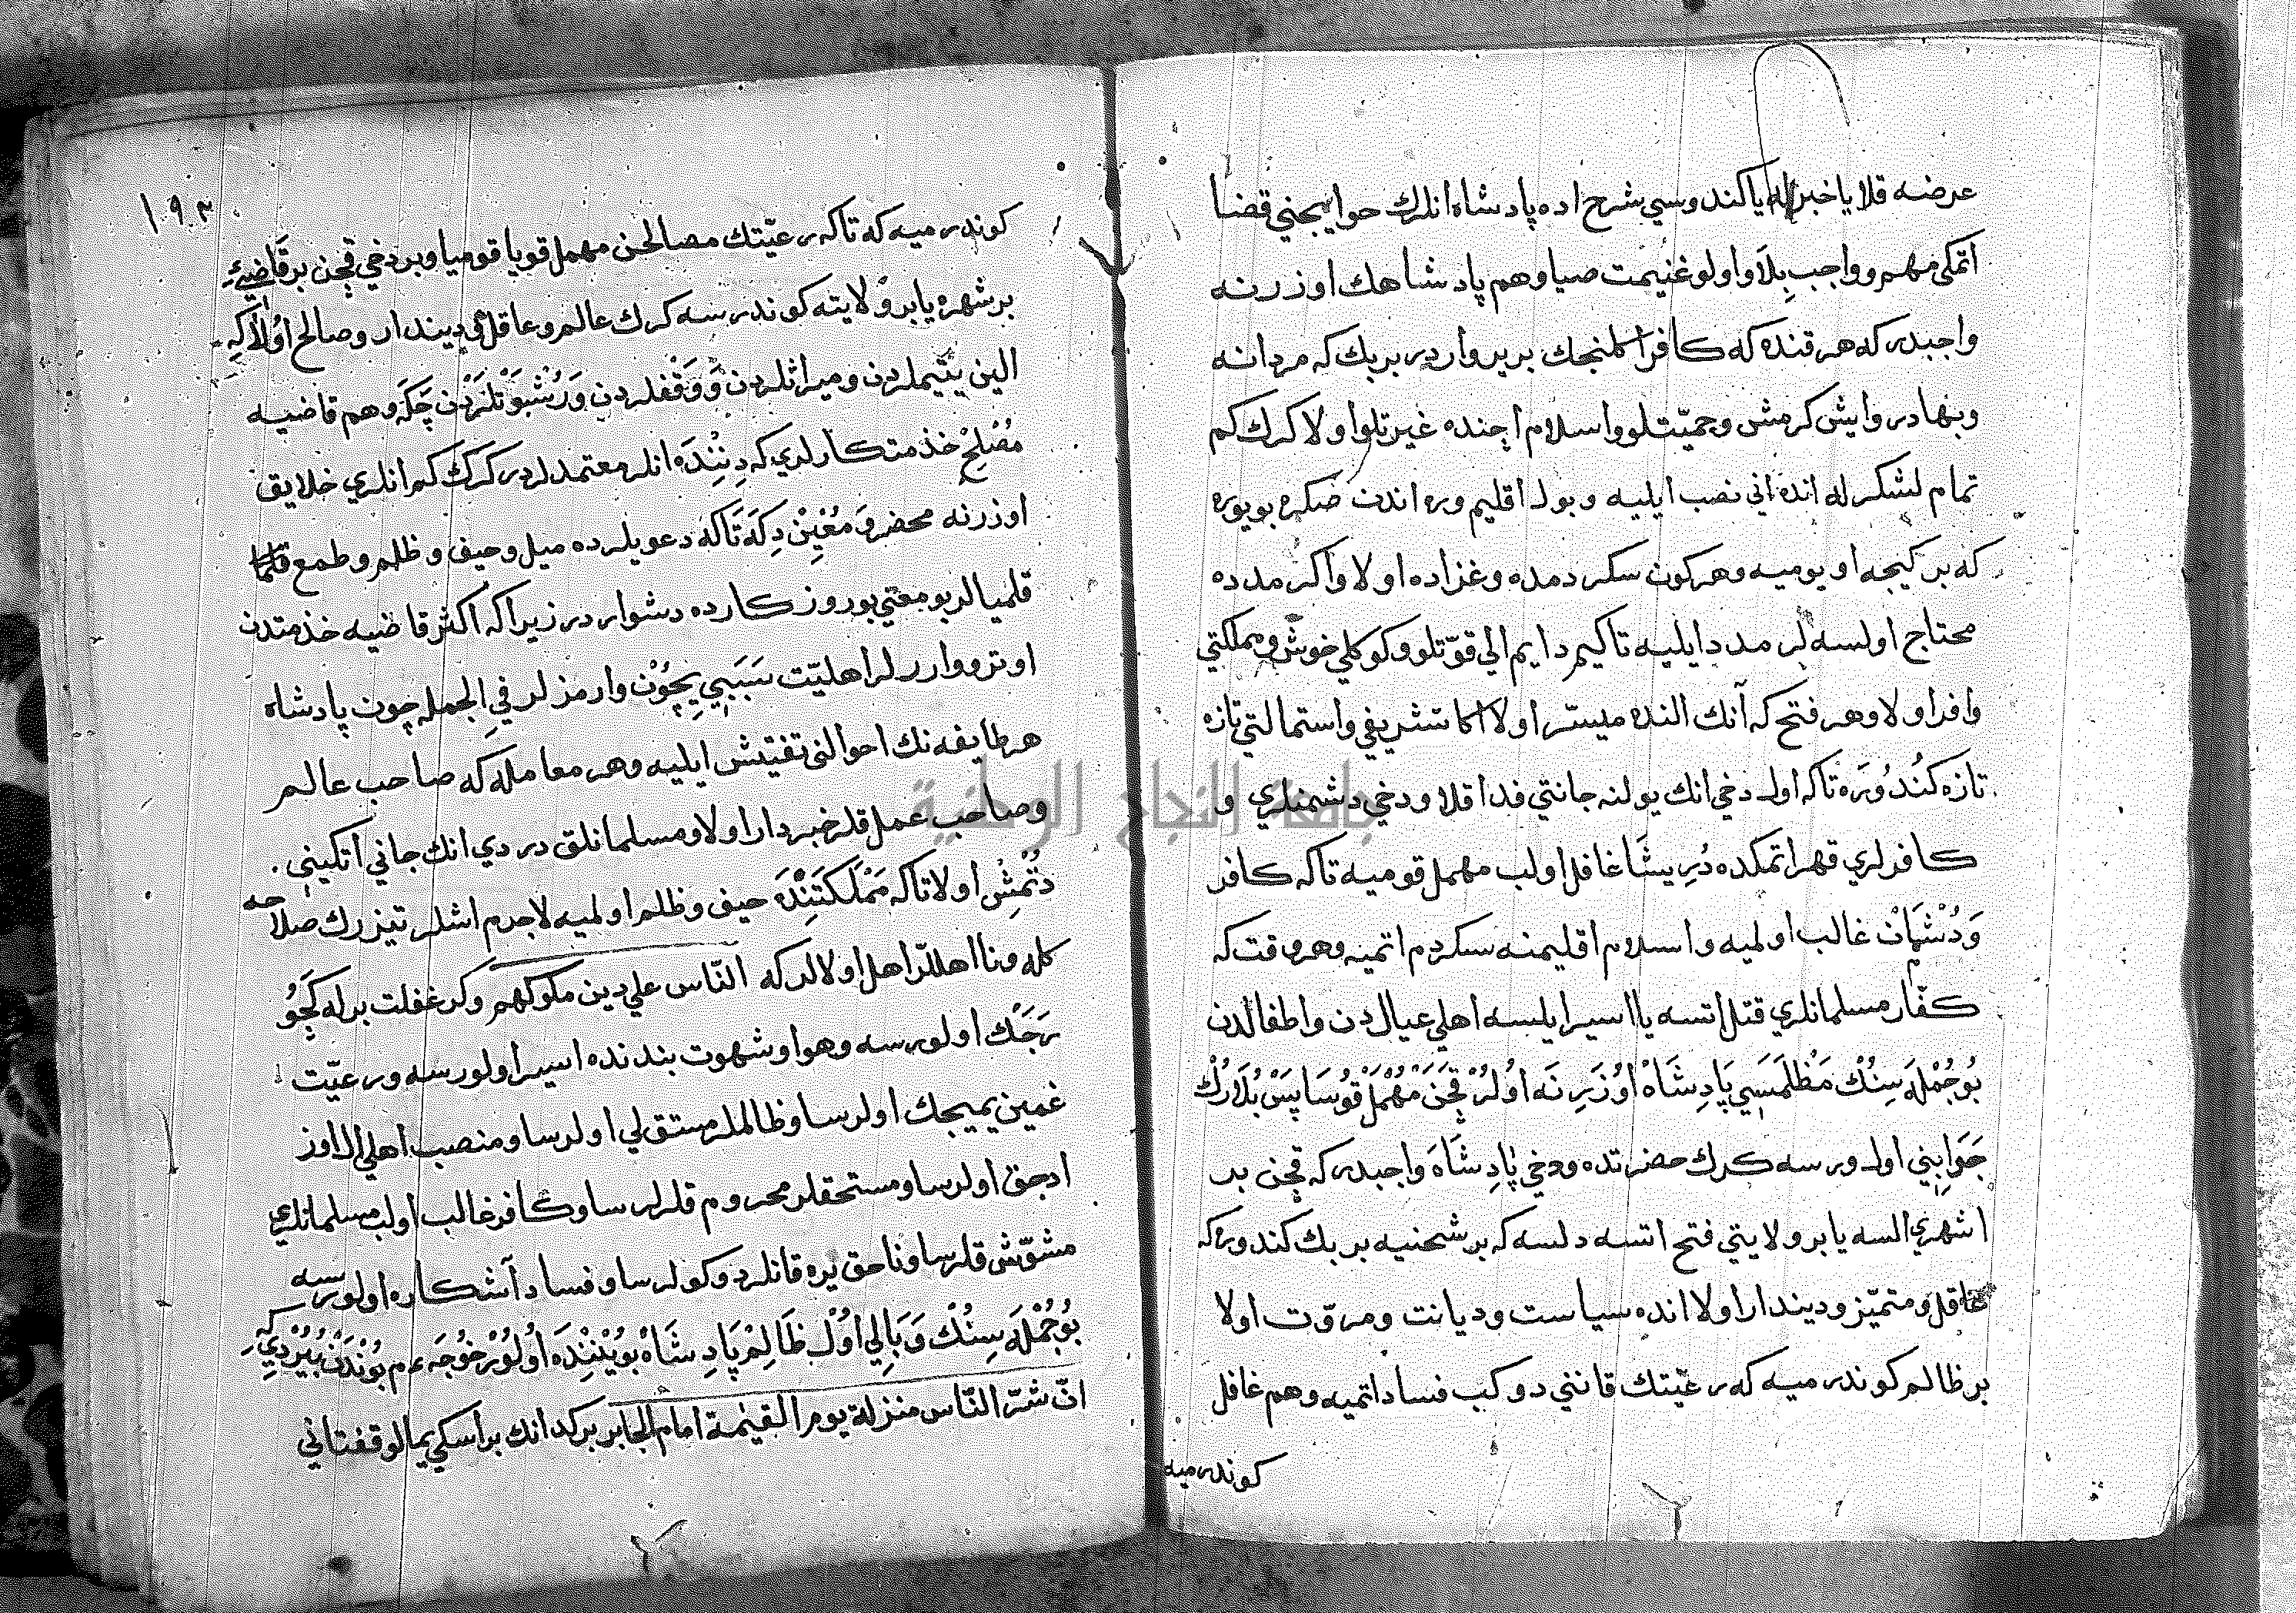 عرضه قلا یا خبر له یا کندوسي شرح اده پادشاه انلرك حوایجني قضا
اتمکي مهم و واجب بلا و اولو غنیمت صیا وهم پادشاهك اوزرنه
واجبدر که هر قنده که کافر اکلنجك بر یر واردر بر بك که مردانه
وبهادر و ایش کرمش وحمیتلو و اسلام اچنده غیرتلو اولا کرك کم
تمام لشکر له انده اني نصب ایلیه وبول اقلیم وره اندن صکره بویوره
که بر کیجه اویومیه وهر کون سکردمده وغزاده اولا و اکر مدده
محتاج اولسه لر مدد ایلیه تا کیم دایم الي قوتلو وکوکلي خوش ومملکتي
وافر اولا وهر فتح که آنك النده میسر اولا اکا تشریفي و استمالتي تازه
تازه کُندُورَه تا که اول دخي انك یولنه جانني فدا قلا ودخي دشمنلري و
کافرلري قهر اتمکده دُرِیشَا غافل اولب مهمل قومیه تا که کافر
وَدُشْمَان غالب اولمیه و اسلام اقلیمنه سکردم اتمیه وهر وقت که
کفار مسلمانلري قتل اتسه یا اسیر ایلسه اهلي عیالدن و اطفالدن
بُو جُمْلَه سِنُكْ مَظْلَمَسِي پَادِشَاهْ اوُزَرِنَه اوُلُرْ قَچَنْ مُهْمَلْ قُوسَا پَسْ بُلَارُكْ
جَوَابِني اول ورسه کرك حضرتده ودخي پَادِشَاهَ واجبدر که قچن بر
شهري السه یا بر ولایتي فتح اتسه دلسه که بر شحنیه بر بك کندوره که
عاقل و متمیز ودیندار اولا انده سیاست ودیانت ومروّت اولا
بر ظالم کوندرمیه که رعیّتك قانني دوکب فساد اتمیه وهم غافل
کوندرمیه
١٩٢
کوندرمیه که تا که رعیّتك مصالحن مهمل قویا قومیا وبر دخي قچن بر قَاضِيءِ
بر شهره یا بر ولایته کوندرسه کرك عالم وعاقل دیندار وصالح اوُلَا کِه
الین یتیملردن ومیراثلردن وَ وَقْفلردن وَرُشْوَتْلَرْدَنْ چَکَه وهم قاضیه
مُصْلِحْ خذمتکارلري که دِینِنْدَه انلر معتمدلردر کرك کم انلري خلایق
اوزرنه محضر وَمُعْیِنْ دِکَه تَا که دعویلرده میل وحیف وظلم وطمع
قلمیالر بو معني بو روزکارده دشوار در زیرا که اکثر قاضیه خذمتدن
اوتورو واررلر اهلیّت سَبَبِي یچُوْن وارمزلر في الجمله چون پادشاه
هر طایفه نك احوالني تفتیش ایلیه وهر معامله که صاحب عالم
وصاحب عمل قلر خبردار اولا ومسلمانلق دردي انك جاني اتکیني
دُتْمِشْ اولا تا که مَمْلَکَتِنْدَه حیف وظلم اولمیه لاجرم اشلر تیزرك صلاحه
کله ونا اهللر اهل اولالر که النّاس علي دین ملوکهم وکر غفلت برله کَچُو
رَجَكْ اولورسه وهوا وشهوت بندنده اسیر اولورسه ورعیّت
غمین یمیجك اولرسا وظالملر مستولي اولرسا ومنصب اهلي ال اوز
ادجق اولرسا ومستحقلر محروم قلرلرسا وکافر غالب اولب مسلمانلري
مشوّش قلرسا وناحق یره قانلر دوکولرسا وفساد آشکاره اولورسه
بُو جُمْلَه سِنُكْ وَبَالِي اوُلْ ظَالِمْ پَادِشَاهْ بُویْنِنْدَه اوُلُورْ خُوجَه م بُوندَنْ بُیُرْدِي کِه
انّ شرّ النّاس منزلة یوم القیٰمة امام الجابر بر کدانك بر اسکي یمالو قفتاني
جامعة النجاح الوطنية